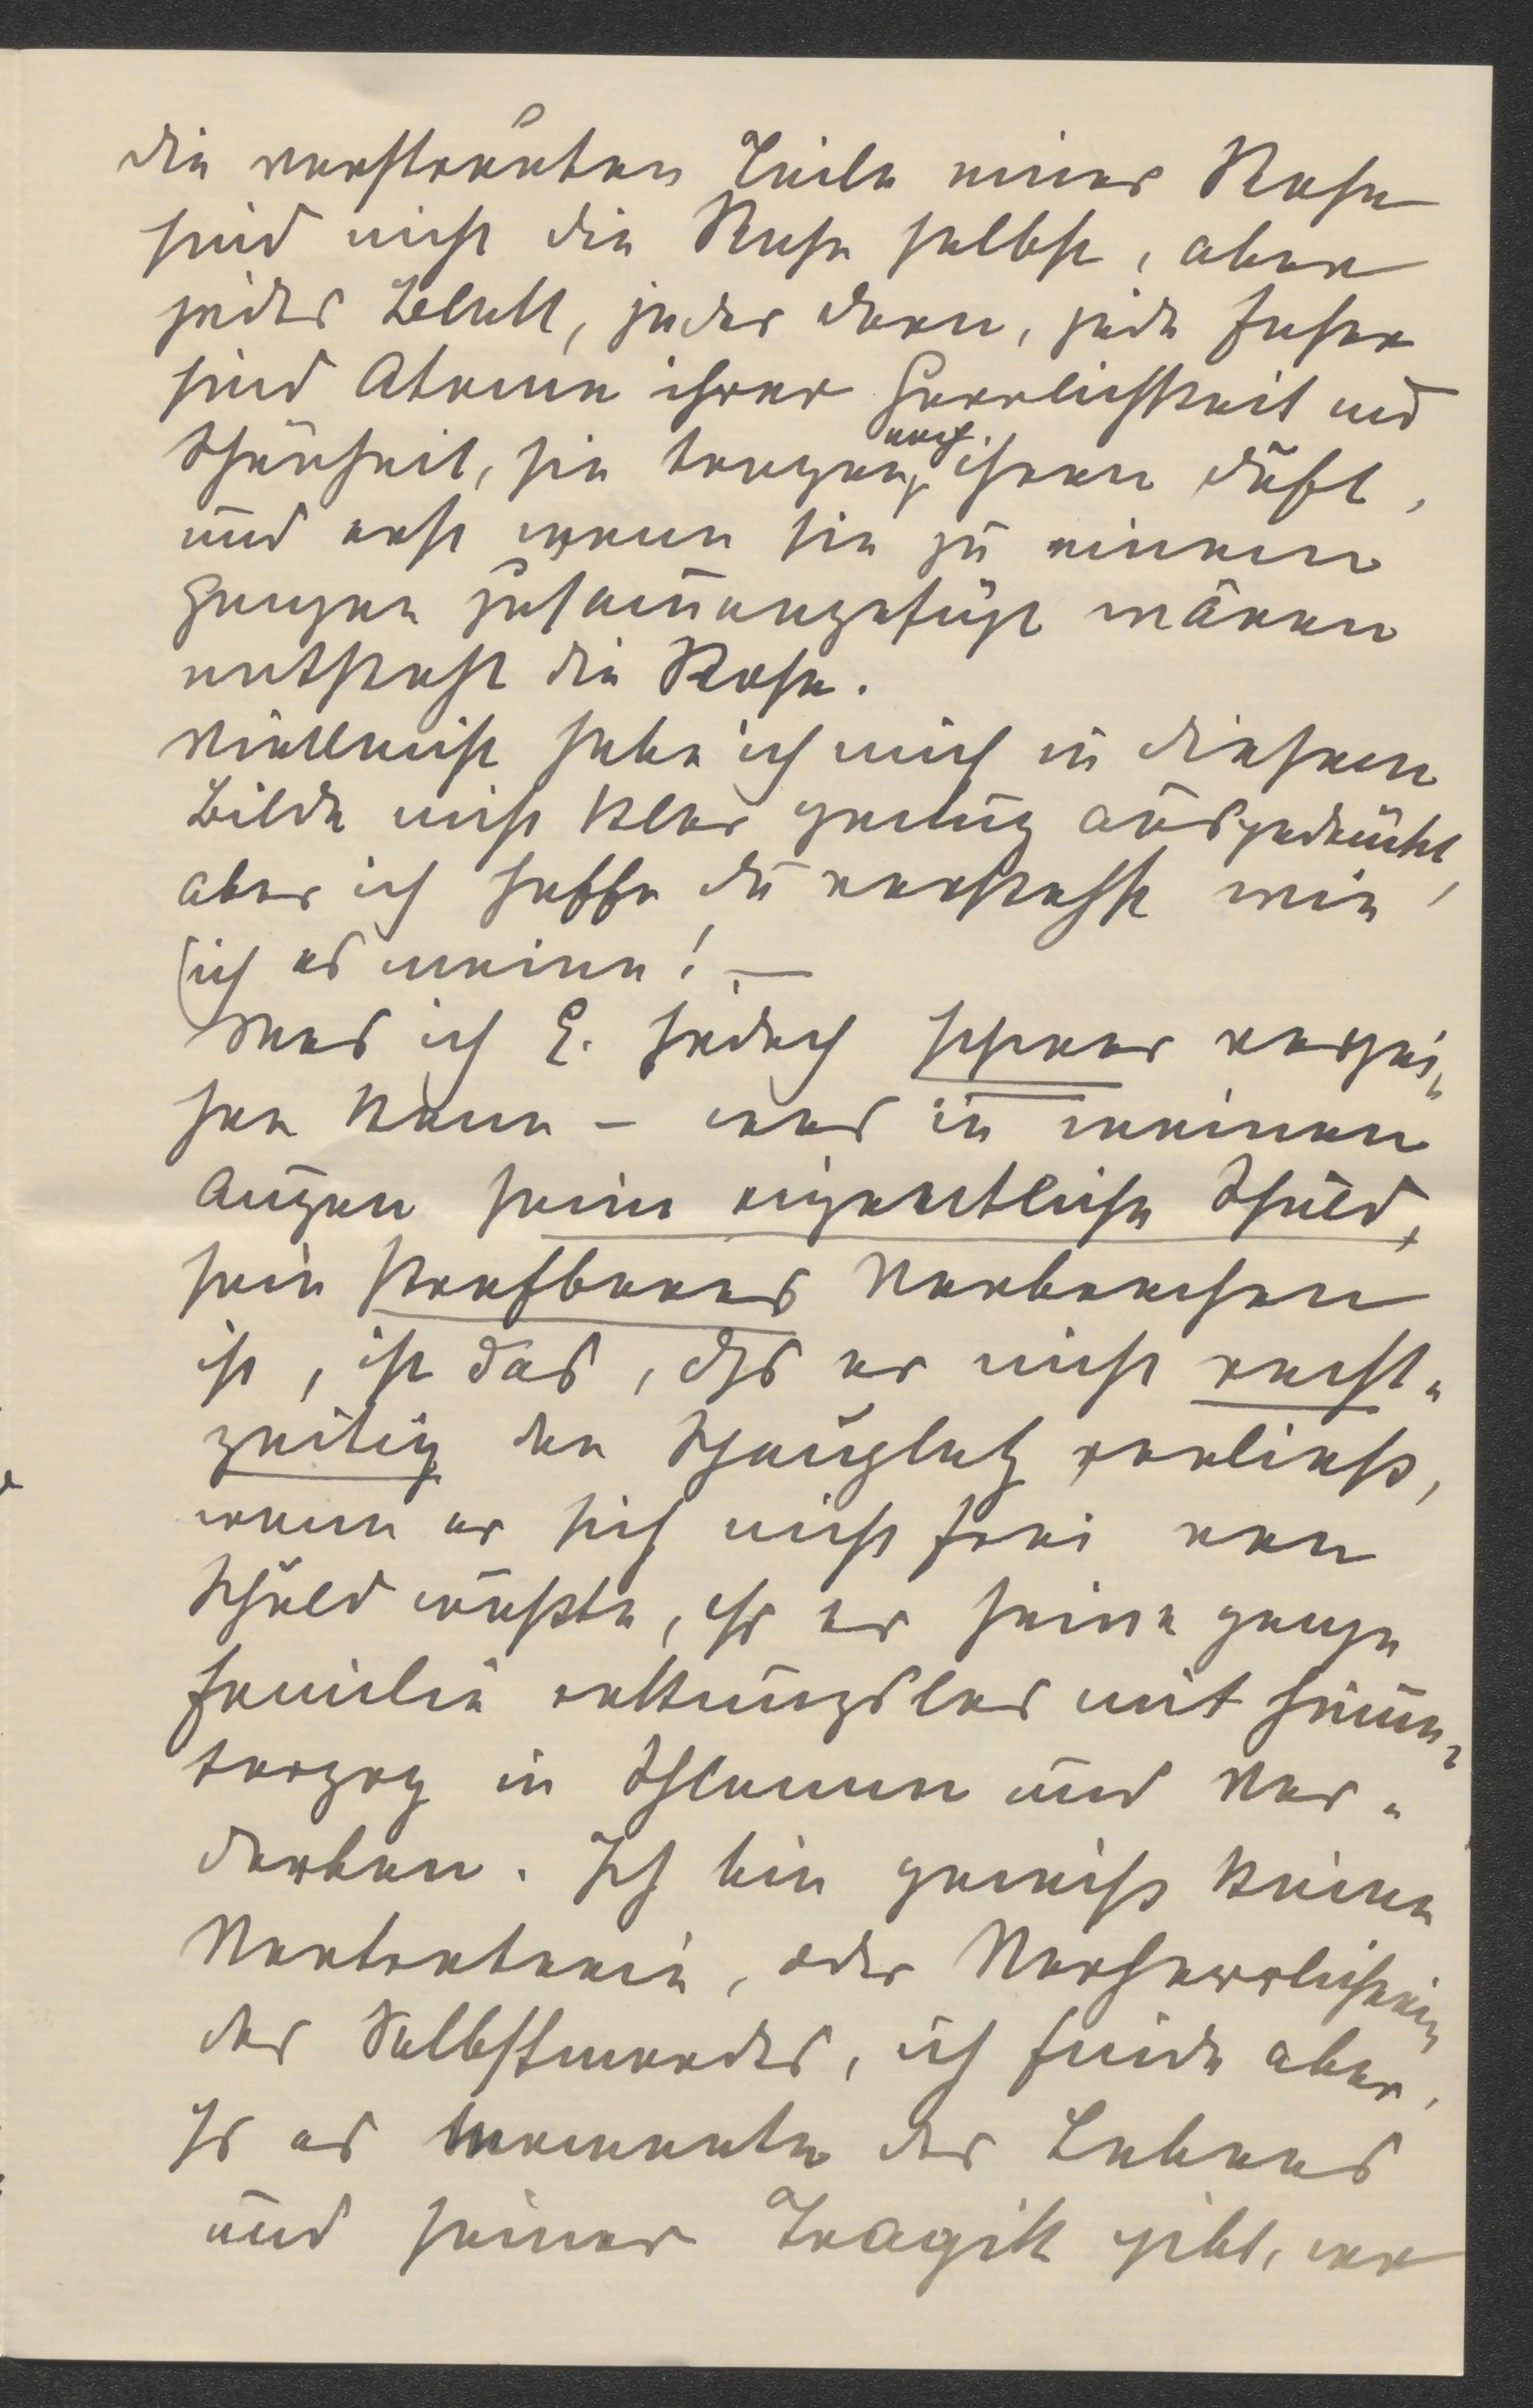 die verstreuten Teile einer Rose
sind nicht die Rose selbst, aber
jedes Blatt, jeder Dorn, jede Faser
sind Atome ihrer Herrlichkeit und
Schönheit, sie tragen noch ihren Duft,
und erst wenn sie zu einem
Ganzen zusam̅engefügt wären
entsteht die Rose.
Vielleicht habe ich mich in diesem
Bilde nicht klar genug ausgedrückt,
aber ich hoffe du verstehst wie
ich es meine! —
Was ich E. jedoch schwer verzei-
hen kann – was in meinen
Augen seine eigentliche Schuld,
sein strafbares Verbrechen
ist, ist das, dß er nicht recht-
zeitig den Schauplatz verließ,
wenn er sich nicht frei von
Schuld wußte, eh er seine ganze
Familie rettungslos mit hinun-
terzog in Schlamm und Ver-
derben. Ich bin gewiss keine
Vertreterin, oder Verherrlicherin
des Selbstmordes, ich finde aber,
dß es Momente des Lebens
und seiner Tragik gibt, wo